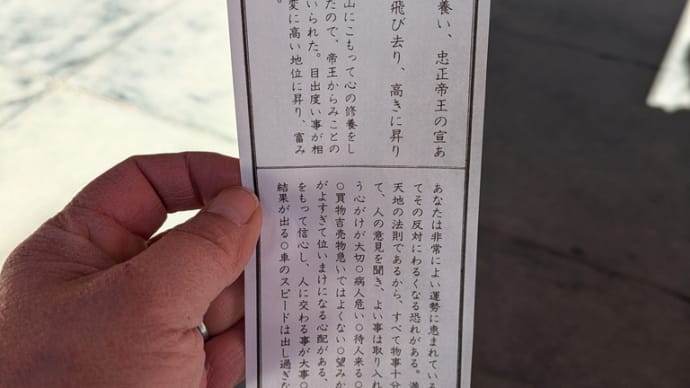 養い、忠正帝王の宣あ
飛び去り、高きに昇り
山にこもって心の修養をし
たので、帝王からみことの
いられた。目出度い事が相
変に高い地位に昇り、富み
。
あなたは非常によい運勢に恵まれている
てその反対にわるくなる恐れがある。満
天地の法則であるから、すべて物事十分
て、人の意見を聞き、よい事は取り入れ
う心がけが大切○病人危い○待人来る○
○買物吉売物急いではよくない○望みか
がよすぎて位いまけになる心配がある、
をもって信心し、人に交わる事が大事○
結果が出る○車のスピードは出し過ぎな